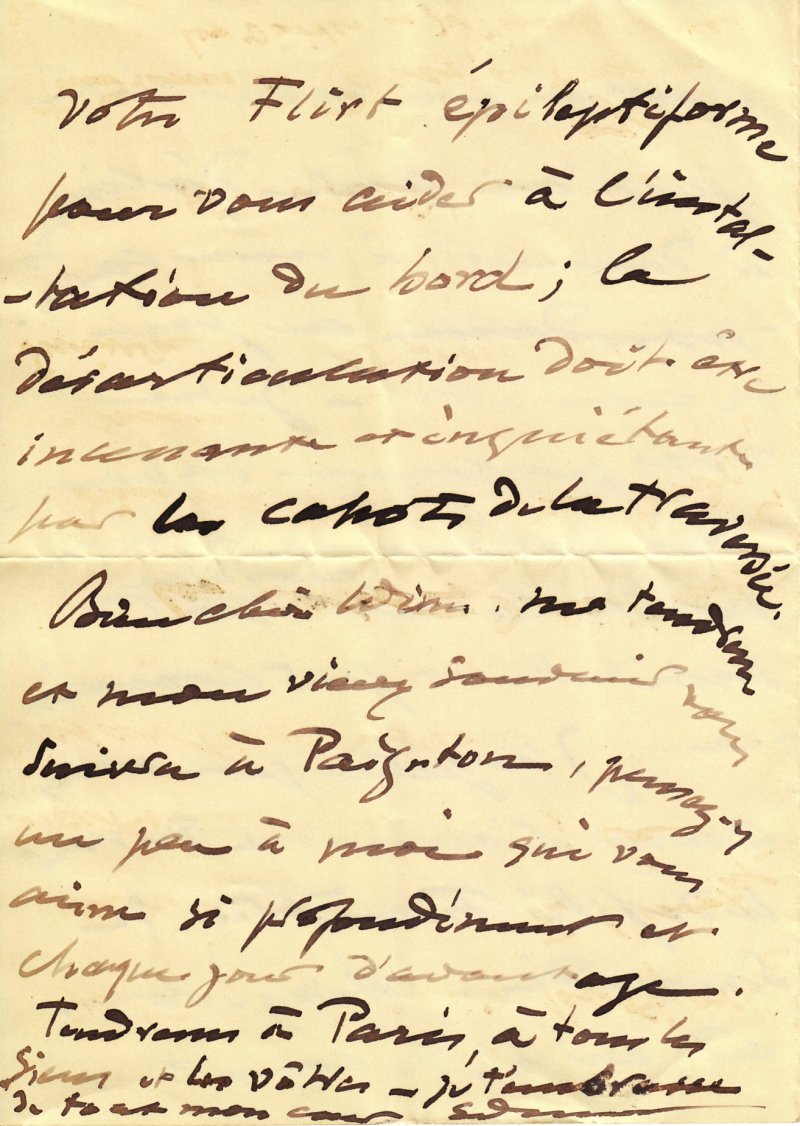 votre Flirt épileptiforme
pour vous aider à l'instal-
-tation du bord ; la
désarticulation doit être
et inquiétante
par les cahots de la traversée.
Bien chère Winn. ma tendresse
et mon vieux souvenir vous
suivra à Paignton, pensez-y
un peu à moi qui vous
aime si profondément et
chaque jour d'avantage.
Tendresses à Paris, à tous les
siens et les vôtres – je t'embrasse
de tout mon cœur